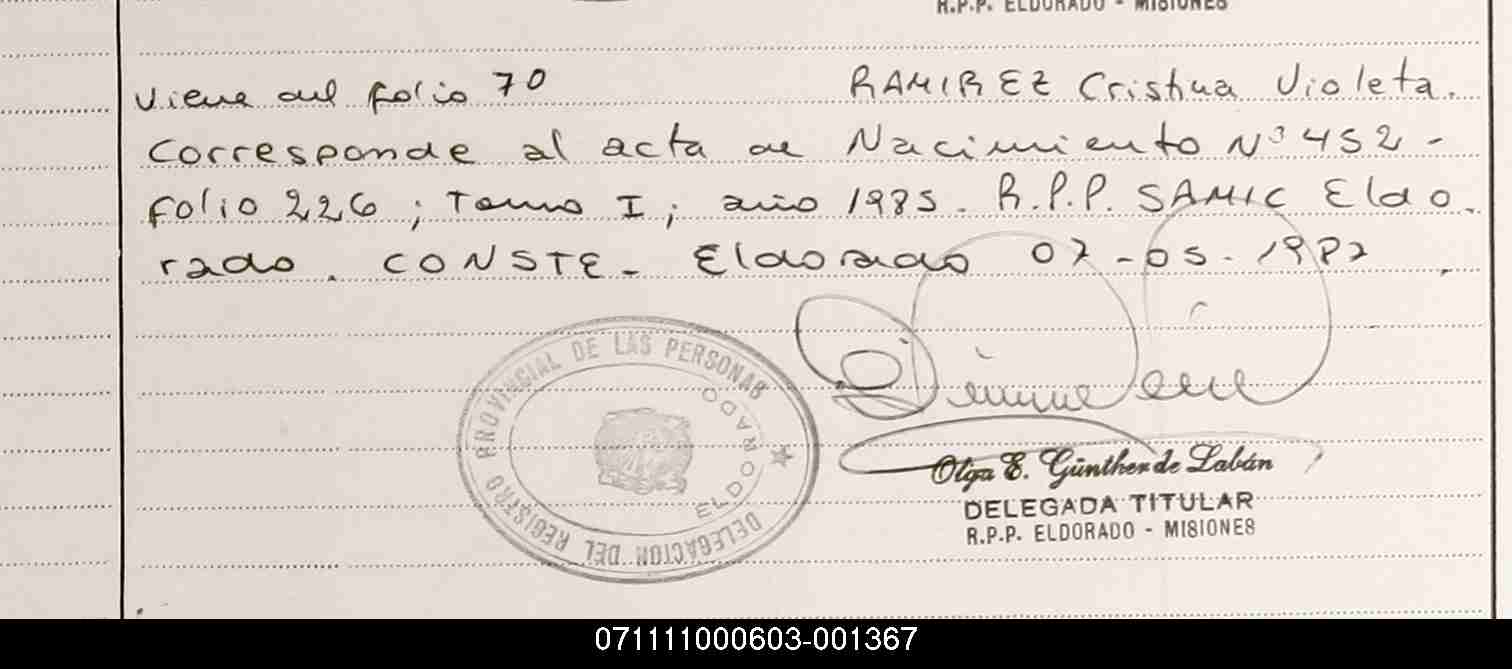 R.P.P. ELDORADO - MISIONES
Viene del folio 70 RAMIREZ Cristina Violeta.
Corresponde al acta de Nacimiento Nº 452 -
folio 226 ; Tomo I ; año 1985. R.P.P. SAMIC Eldo
rado. CONSTE - Eldorado 07-05-1987.
DELEGACION DEL REGISTRO PROVINCIAL DE LAS PERSONAS
ELDORADO
Olga E. Günther de Labán
DELEGADA TITULAR
R.P.P. ELDORADO - MISIONES
071111000603-001367